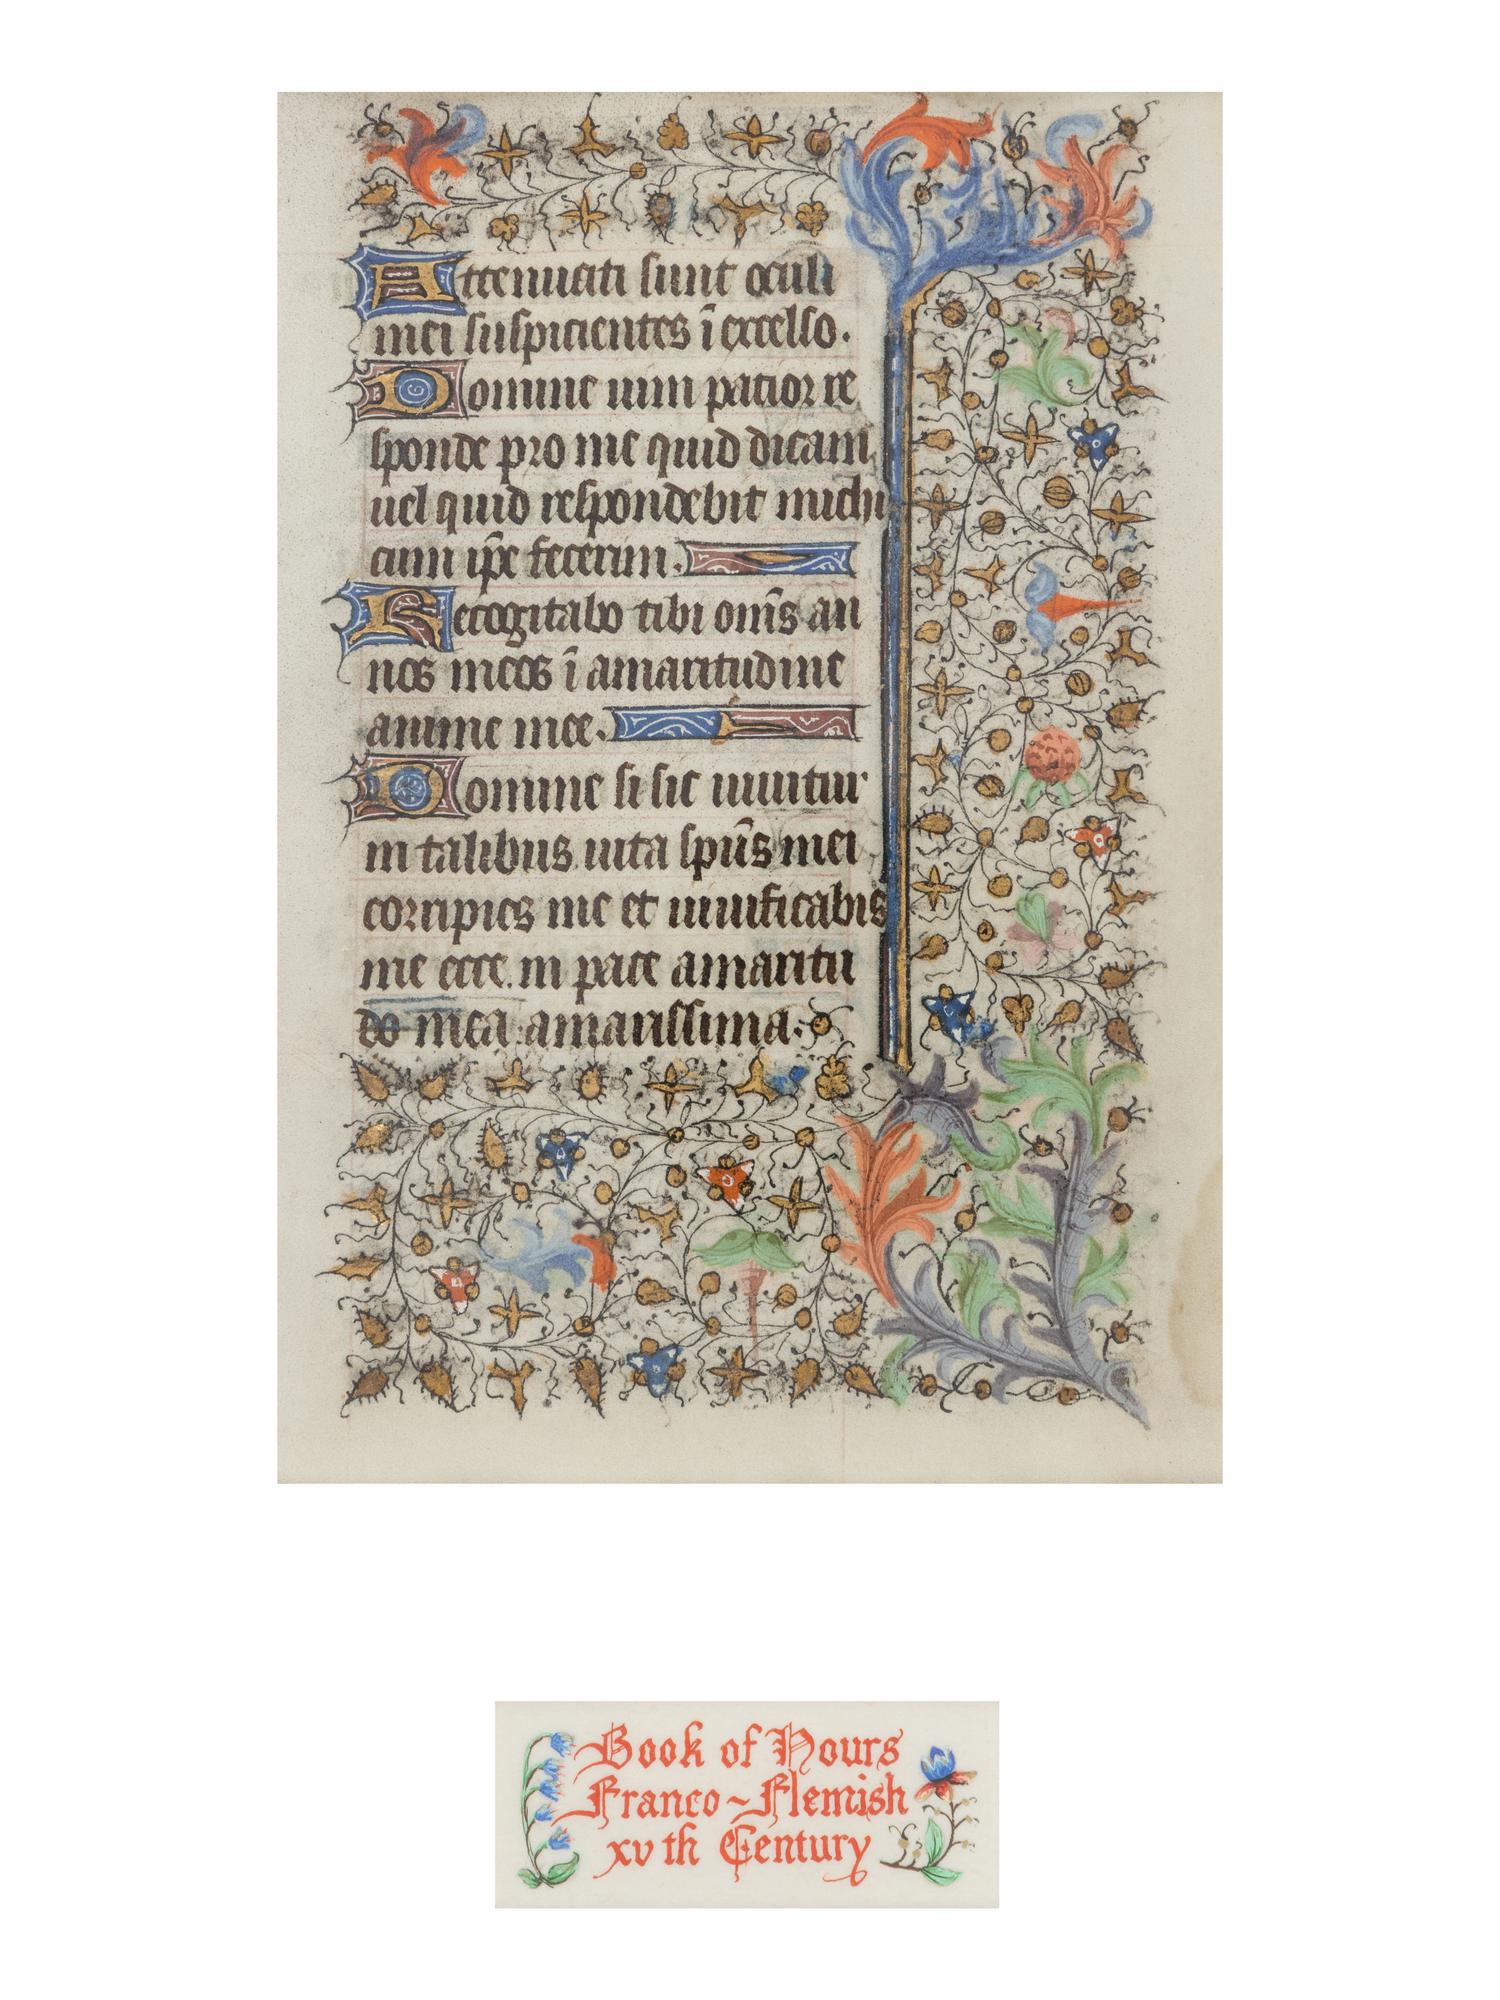 Attenuati sunt oculi
mei suspicientes ī excelso.
Domine uim patior re
sponde pro me quid dicam
uel quid respondebit michi
cum ip̄e fecerim.
Recogitabo tibi om̄s an
nos meos ī amaritudine
anime mee.
Domine si sic uiuitur
in talibus uita sp̄us mei
corripies me et uiuificabis
me ecce in pace amaritu
do mea amarissima.
Book of Hours
Franco~Flemish
xvth Century